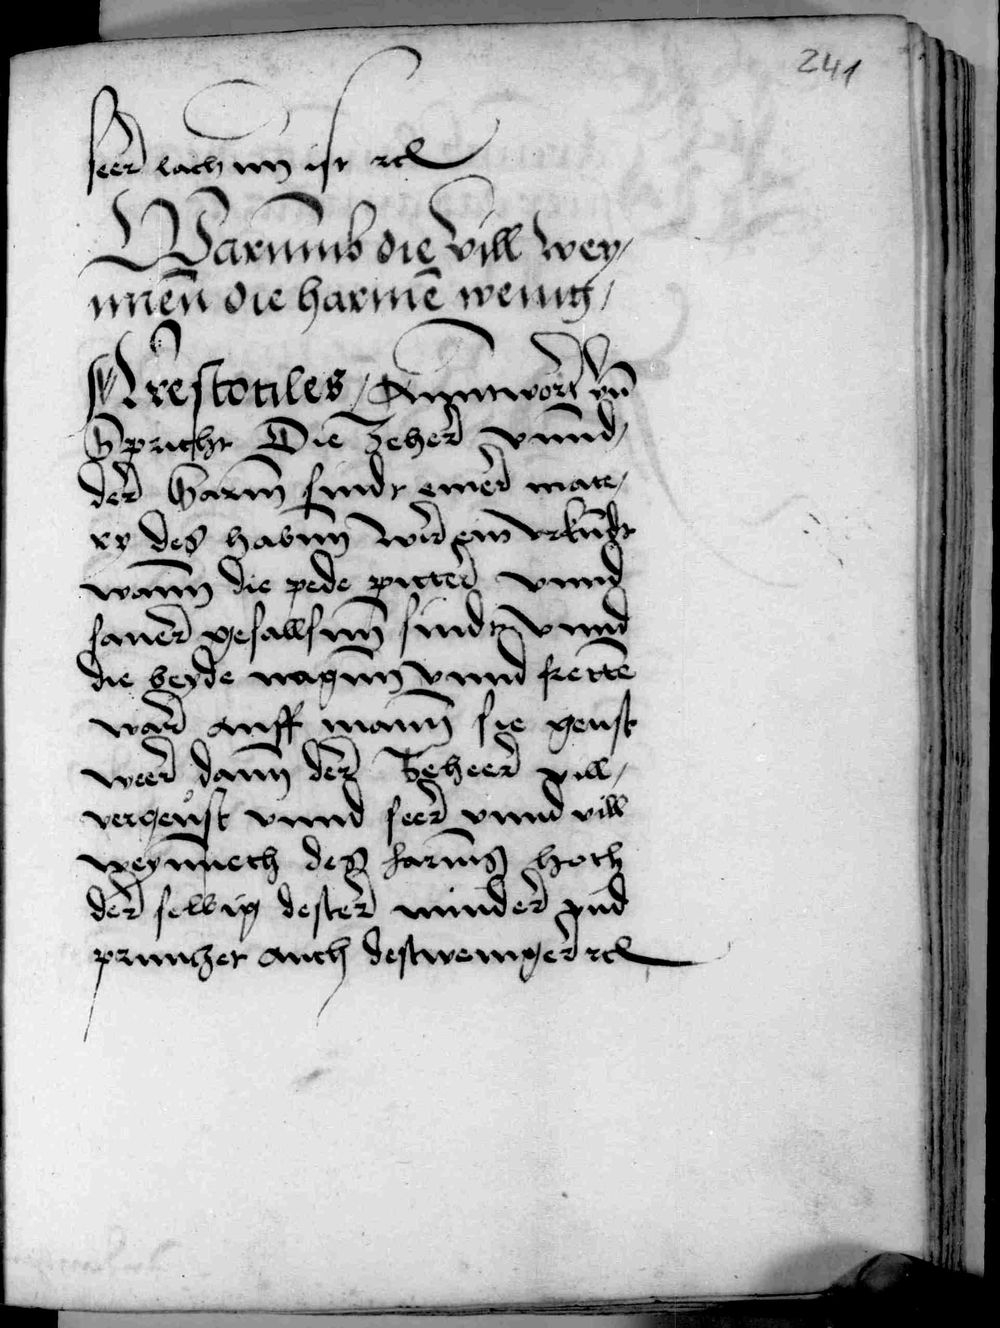 241
seer lachnn ist rcl
Warumb die vill wey/
nnen die harmē wenig /
Arestotiles / Anntwort vn̄
Spricht Die Zeher vnnd/
der Harm sindt einer mate/
ry des habnn wir ein vrkundt
wann die pede pitter vnnd
sauer gesalssnn sindt vnnd
die beyde nagnn vnnd frettē
war auff mann sie geust
weer dann der Zeheer vill/
vergeust vnnd seer vnnd vill
weynneth des harms hoth
der selbig dester minder vnd
prunczet auch destweniger rcl